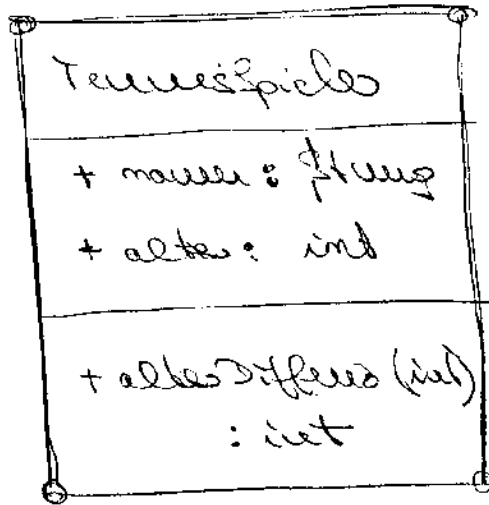 Tennisspieler
+ name : String
+ alter : int
+ alterDifferenz (int)
: int